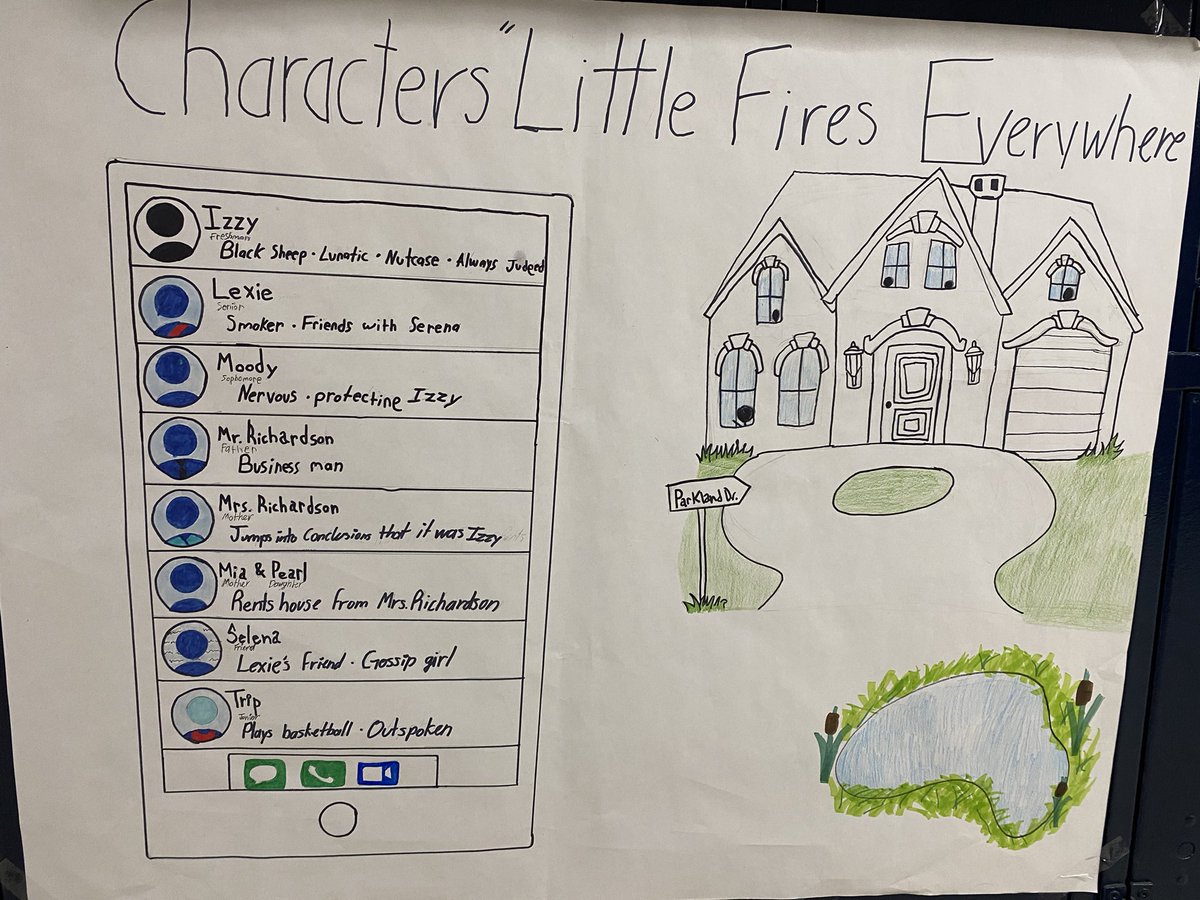 Characters "Little Fires Everywhere
Izzy
Freshman
Black Sheep · Lunatic · Nutcase · Always Judged
Lexie
Senior
Smoker · Friends with Serena
Moody
Sophomore
Nervous · protecting Izzy
Mr. Richardson
Father
Business man
Mrs. Richardson
Mother
Jumps into Conclusions that it was Izzy
Mia & Pearl
Mother Daughter
Rents house from Mrs. Richardson
Selena
Friend
Lexie's Friend · Gossip girl
Trip
Junior
Plays basketball · Outspoken
Parkland Dr.